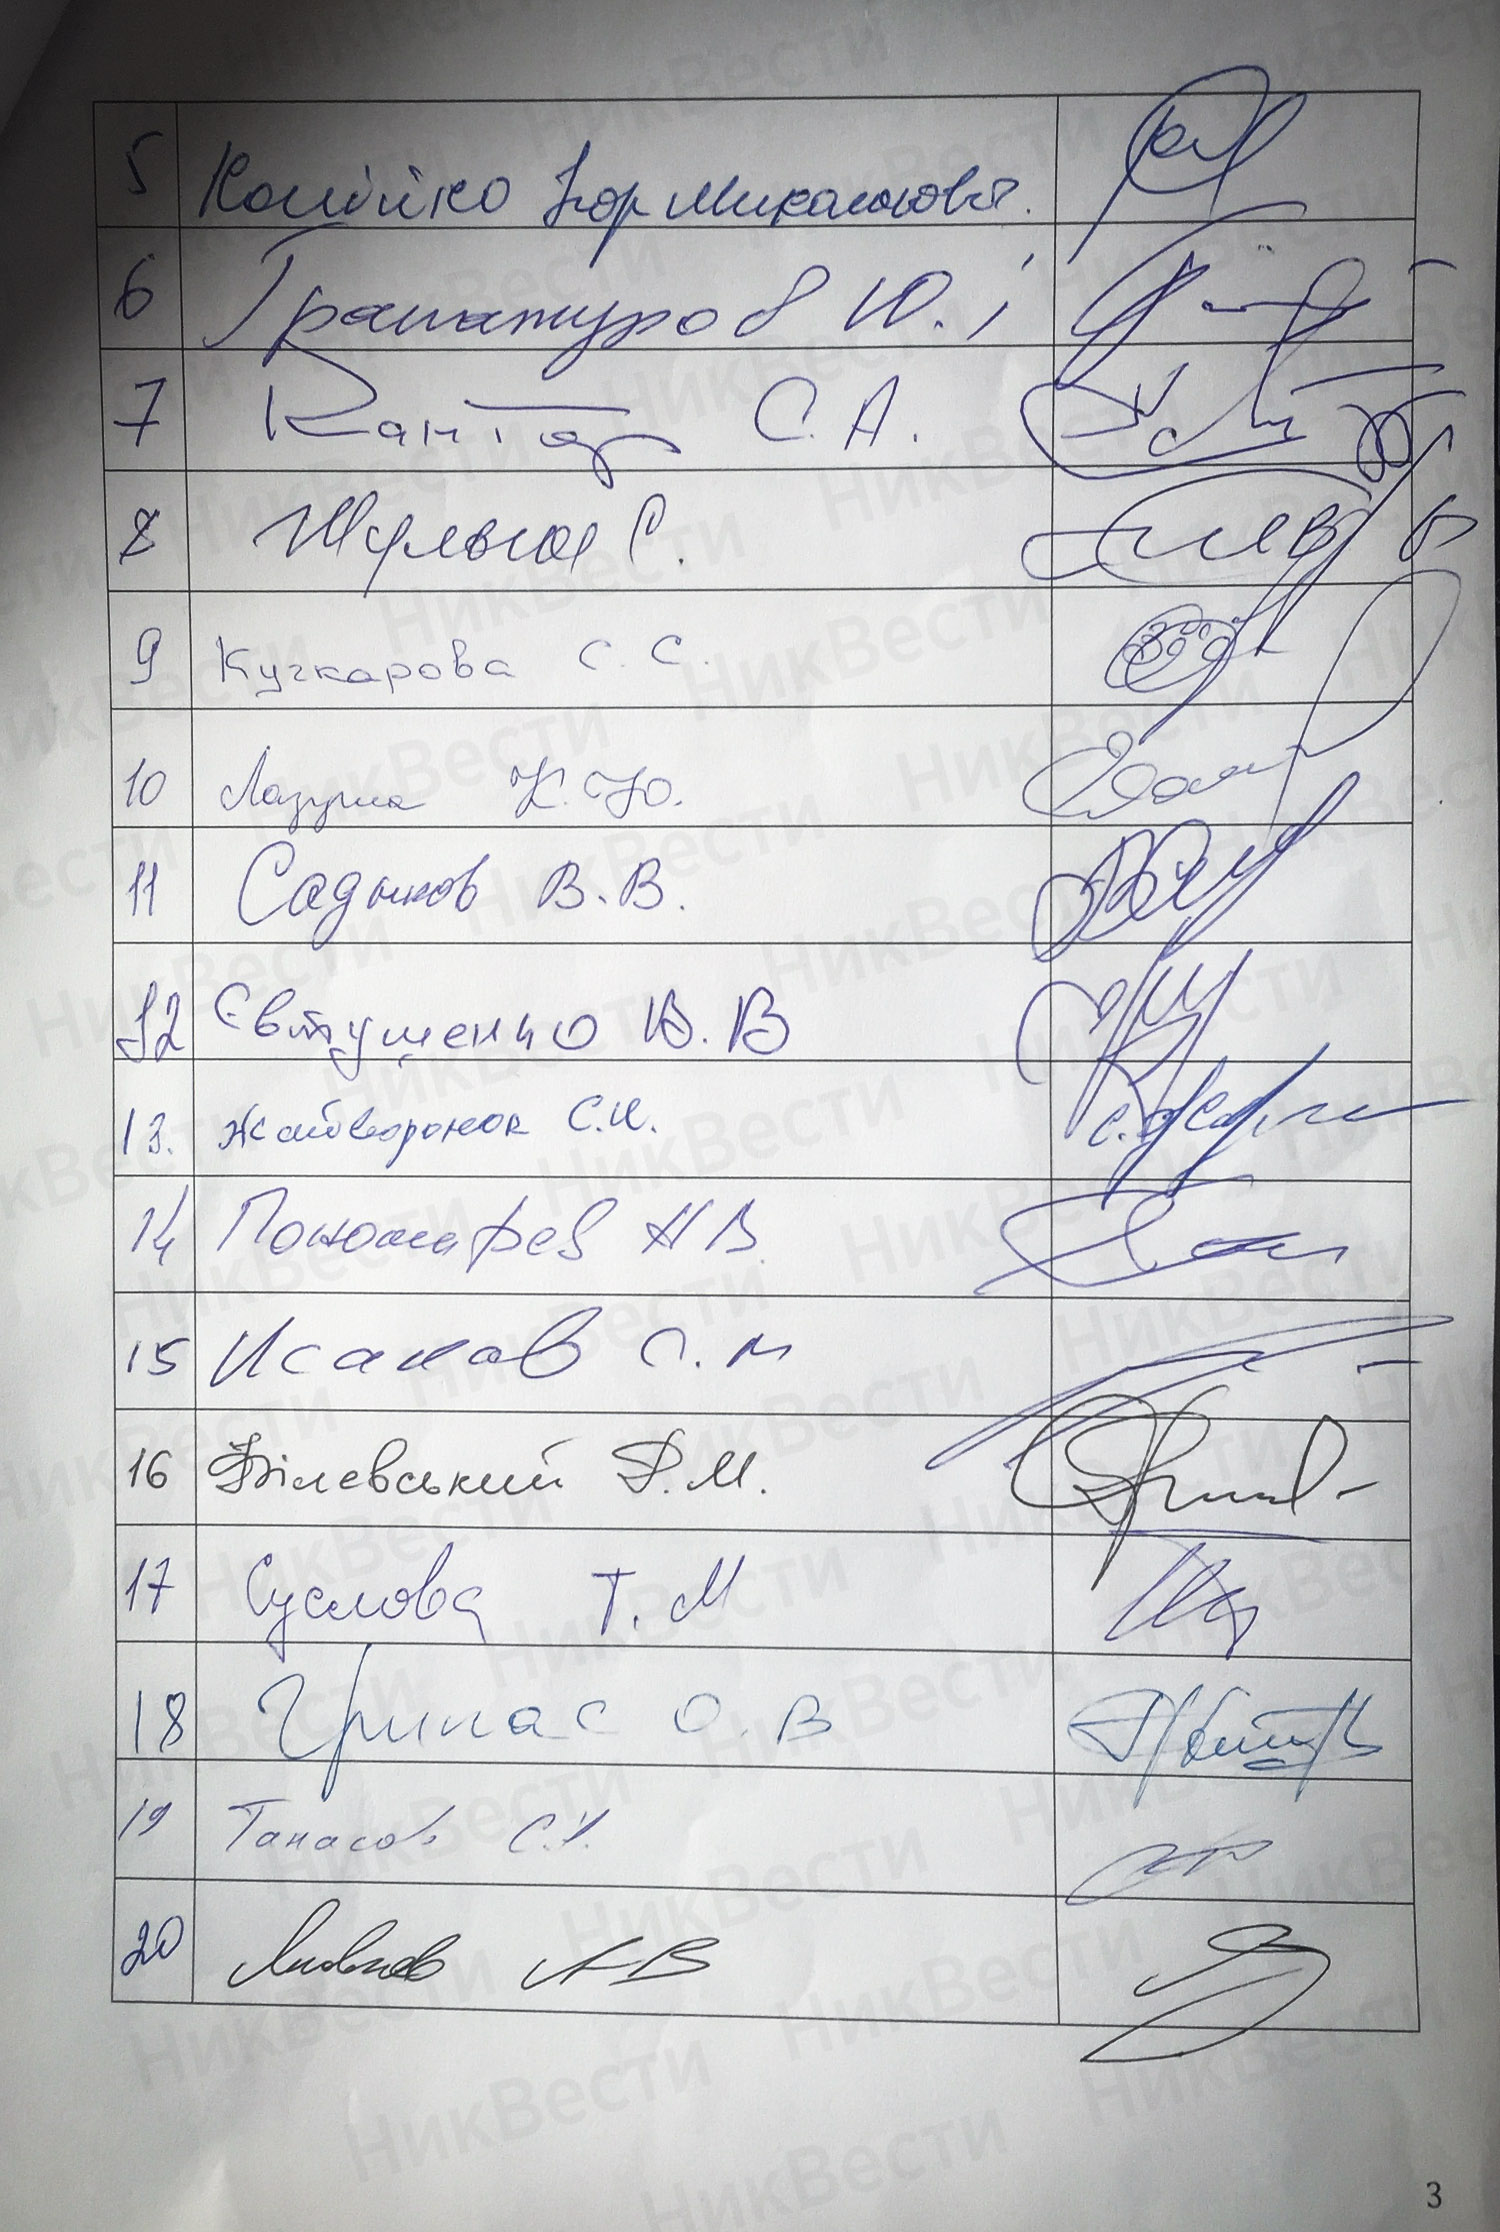 5 Копійко Ігор Миколайович.
6 Гранатуров Ю. І
7 Кантор С. А.
8 С.
9 Кучкарова С. С.
10 К. Ю.
11 Садыков В. В.
12 Євтушенко В. В
13. Жайворонок С.И.
14 Пономарев Н В
15 Исаков С. М
16 Білевський Р. М.
17 Суслова Т. М
18 Грипас О. В
19 Танасов С.І.
20 А В
3
НикВести